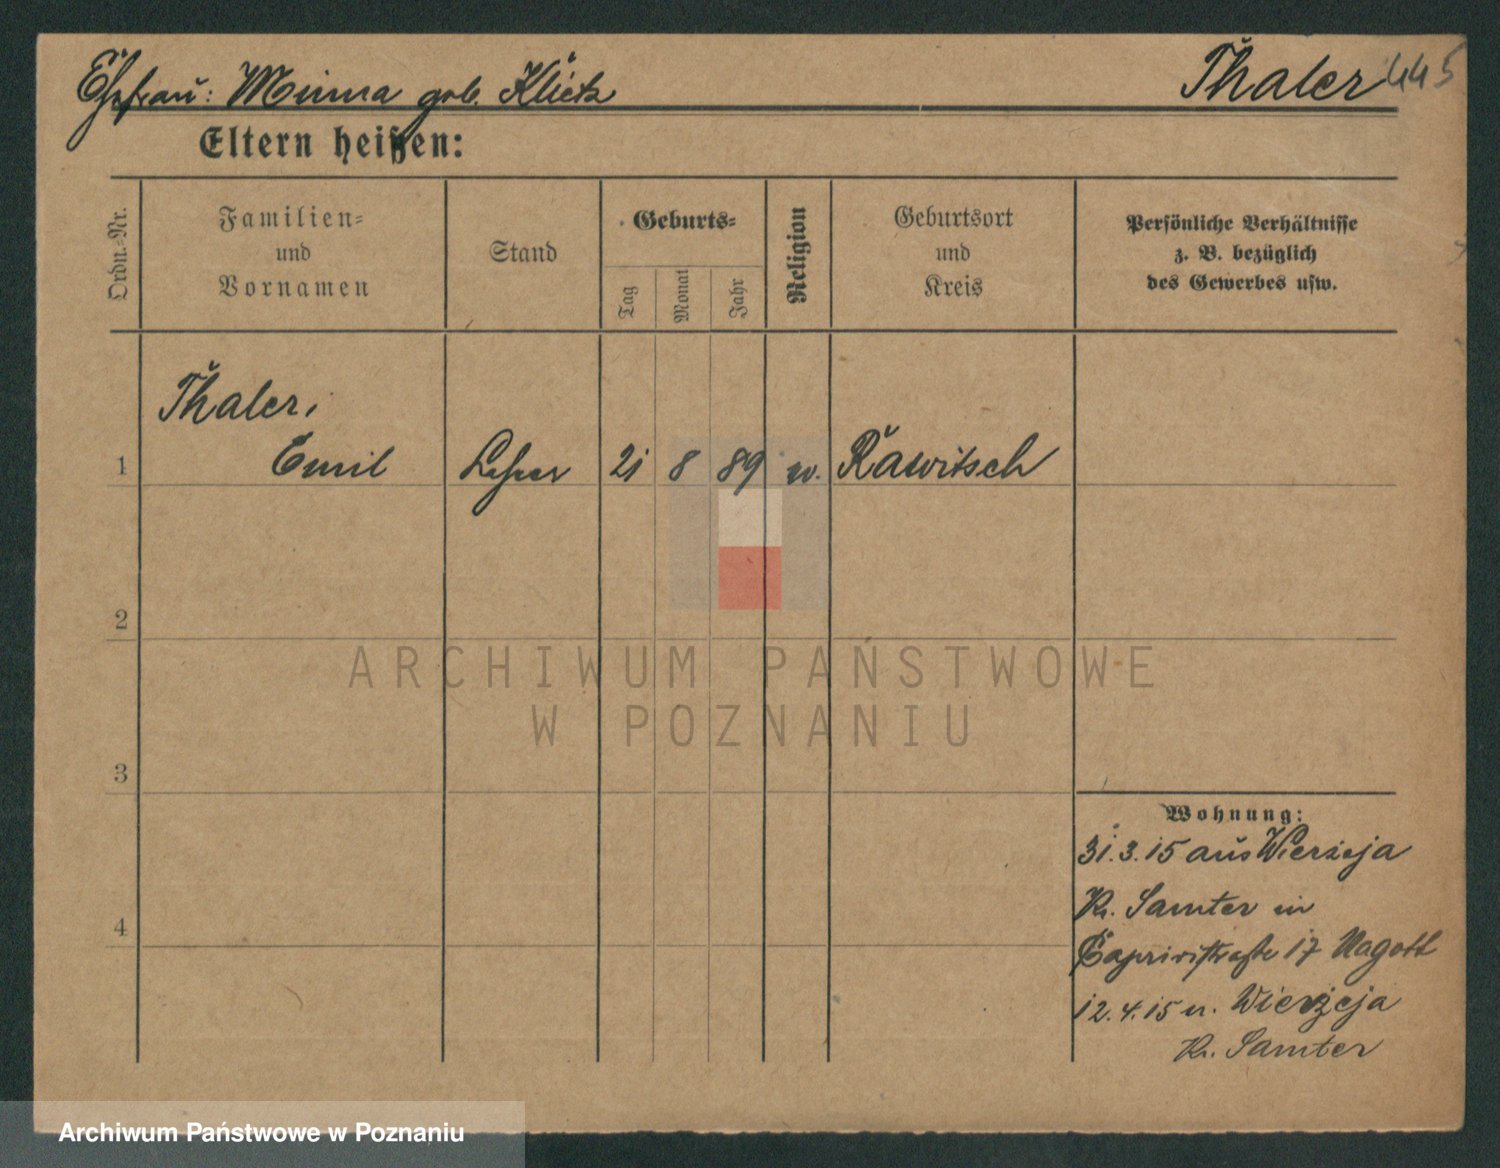 Ehefrau: Minna geb. Klietz
Thaler 445
Eltern heißen:
Ordn.-Nr.
Familien-
und
Vornamen
Stand
Geburts-
Tag
Monat
Jahr
Religion
Geburtsort
und
Kreis
Persönliche Verhältnisse
z. B. bezüglich
des Gewerbes usw.
Thaler,
1 Emil Lehrer 21 8 89 Rawitsch
2
3
4
ARCHIWUM PAŃSTWOWE
W POZNANIU
Wohnung:
31.3.15 aus Wierzeja
Kr. Samter in
Caprivistraße 17
12.4.15 n. Wierzeja
Kr. Samter
Archiwum Państwowe w Poznaniu